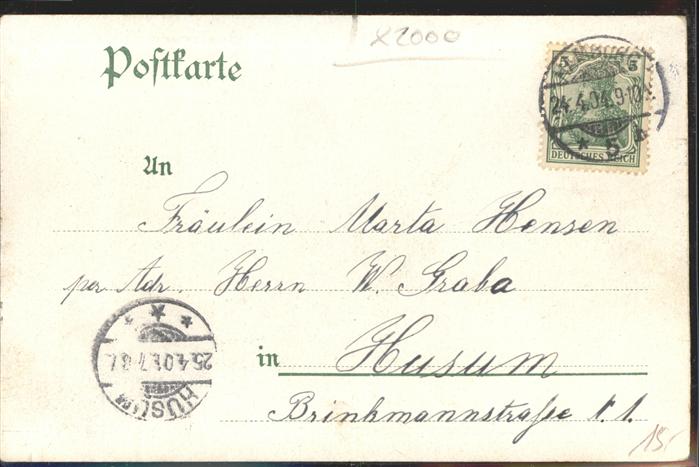 x2000
Postkarte
5 5
24.4.04.9-10V.
* 5 *
DEUTSCHES REICH
An
Fräulein Marta Hensen
per Adr. Herrn W. Graba
in Husum
Brinkmannstraße N. 1.
HUSUM
25.4.04.7-8V.
15.-